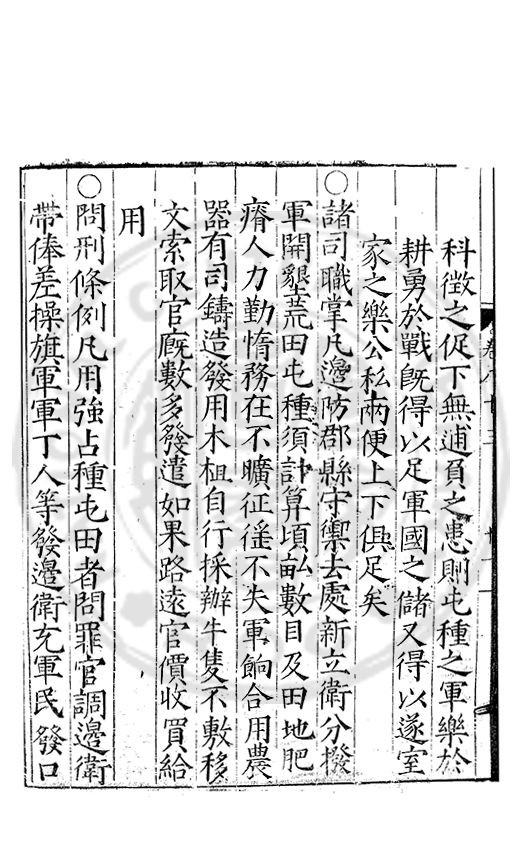 科徵之促下無逋負之患則屯種之軍樂於
耕勇於戰旣得以足軍國之儲又得以遂室
家之樂公私兩便上下俱足矣
○諸司職掌凡邊防郡縣守禦去處新立衛分撥
軍開墾荒田屯種須計算頃畝數目及田地肥
瘠人力勤惰務在不曠征徭不失軍餉合用農
器有司鑄造發用木柤自行採辦牛隻不敷移
文索取官廐數多發遣如果路遠官價收買給
用
○問刑條例凡用強占種屯田者問罪官調邊衛
帶俸差操旗軍軍丁人等發邊衛充軍民發口